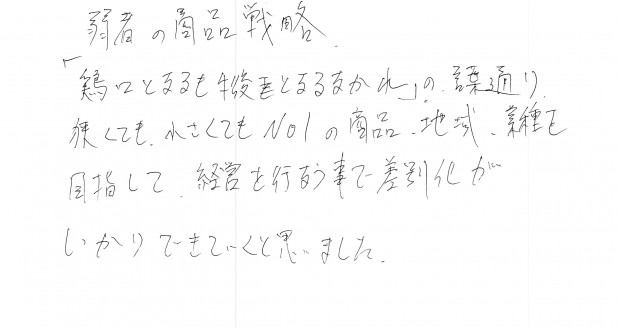 弱者の商品戦略、
「鶏口となるも牛後となるなかれ」の言葉通り
狭くても、小さくてもNO1の商品、地域、業種を
目指して、経営を行なう事で差別化が
しっかりできていくと思いました。